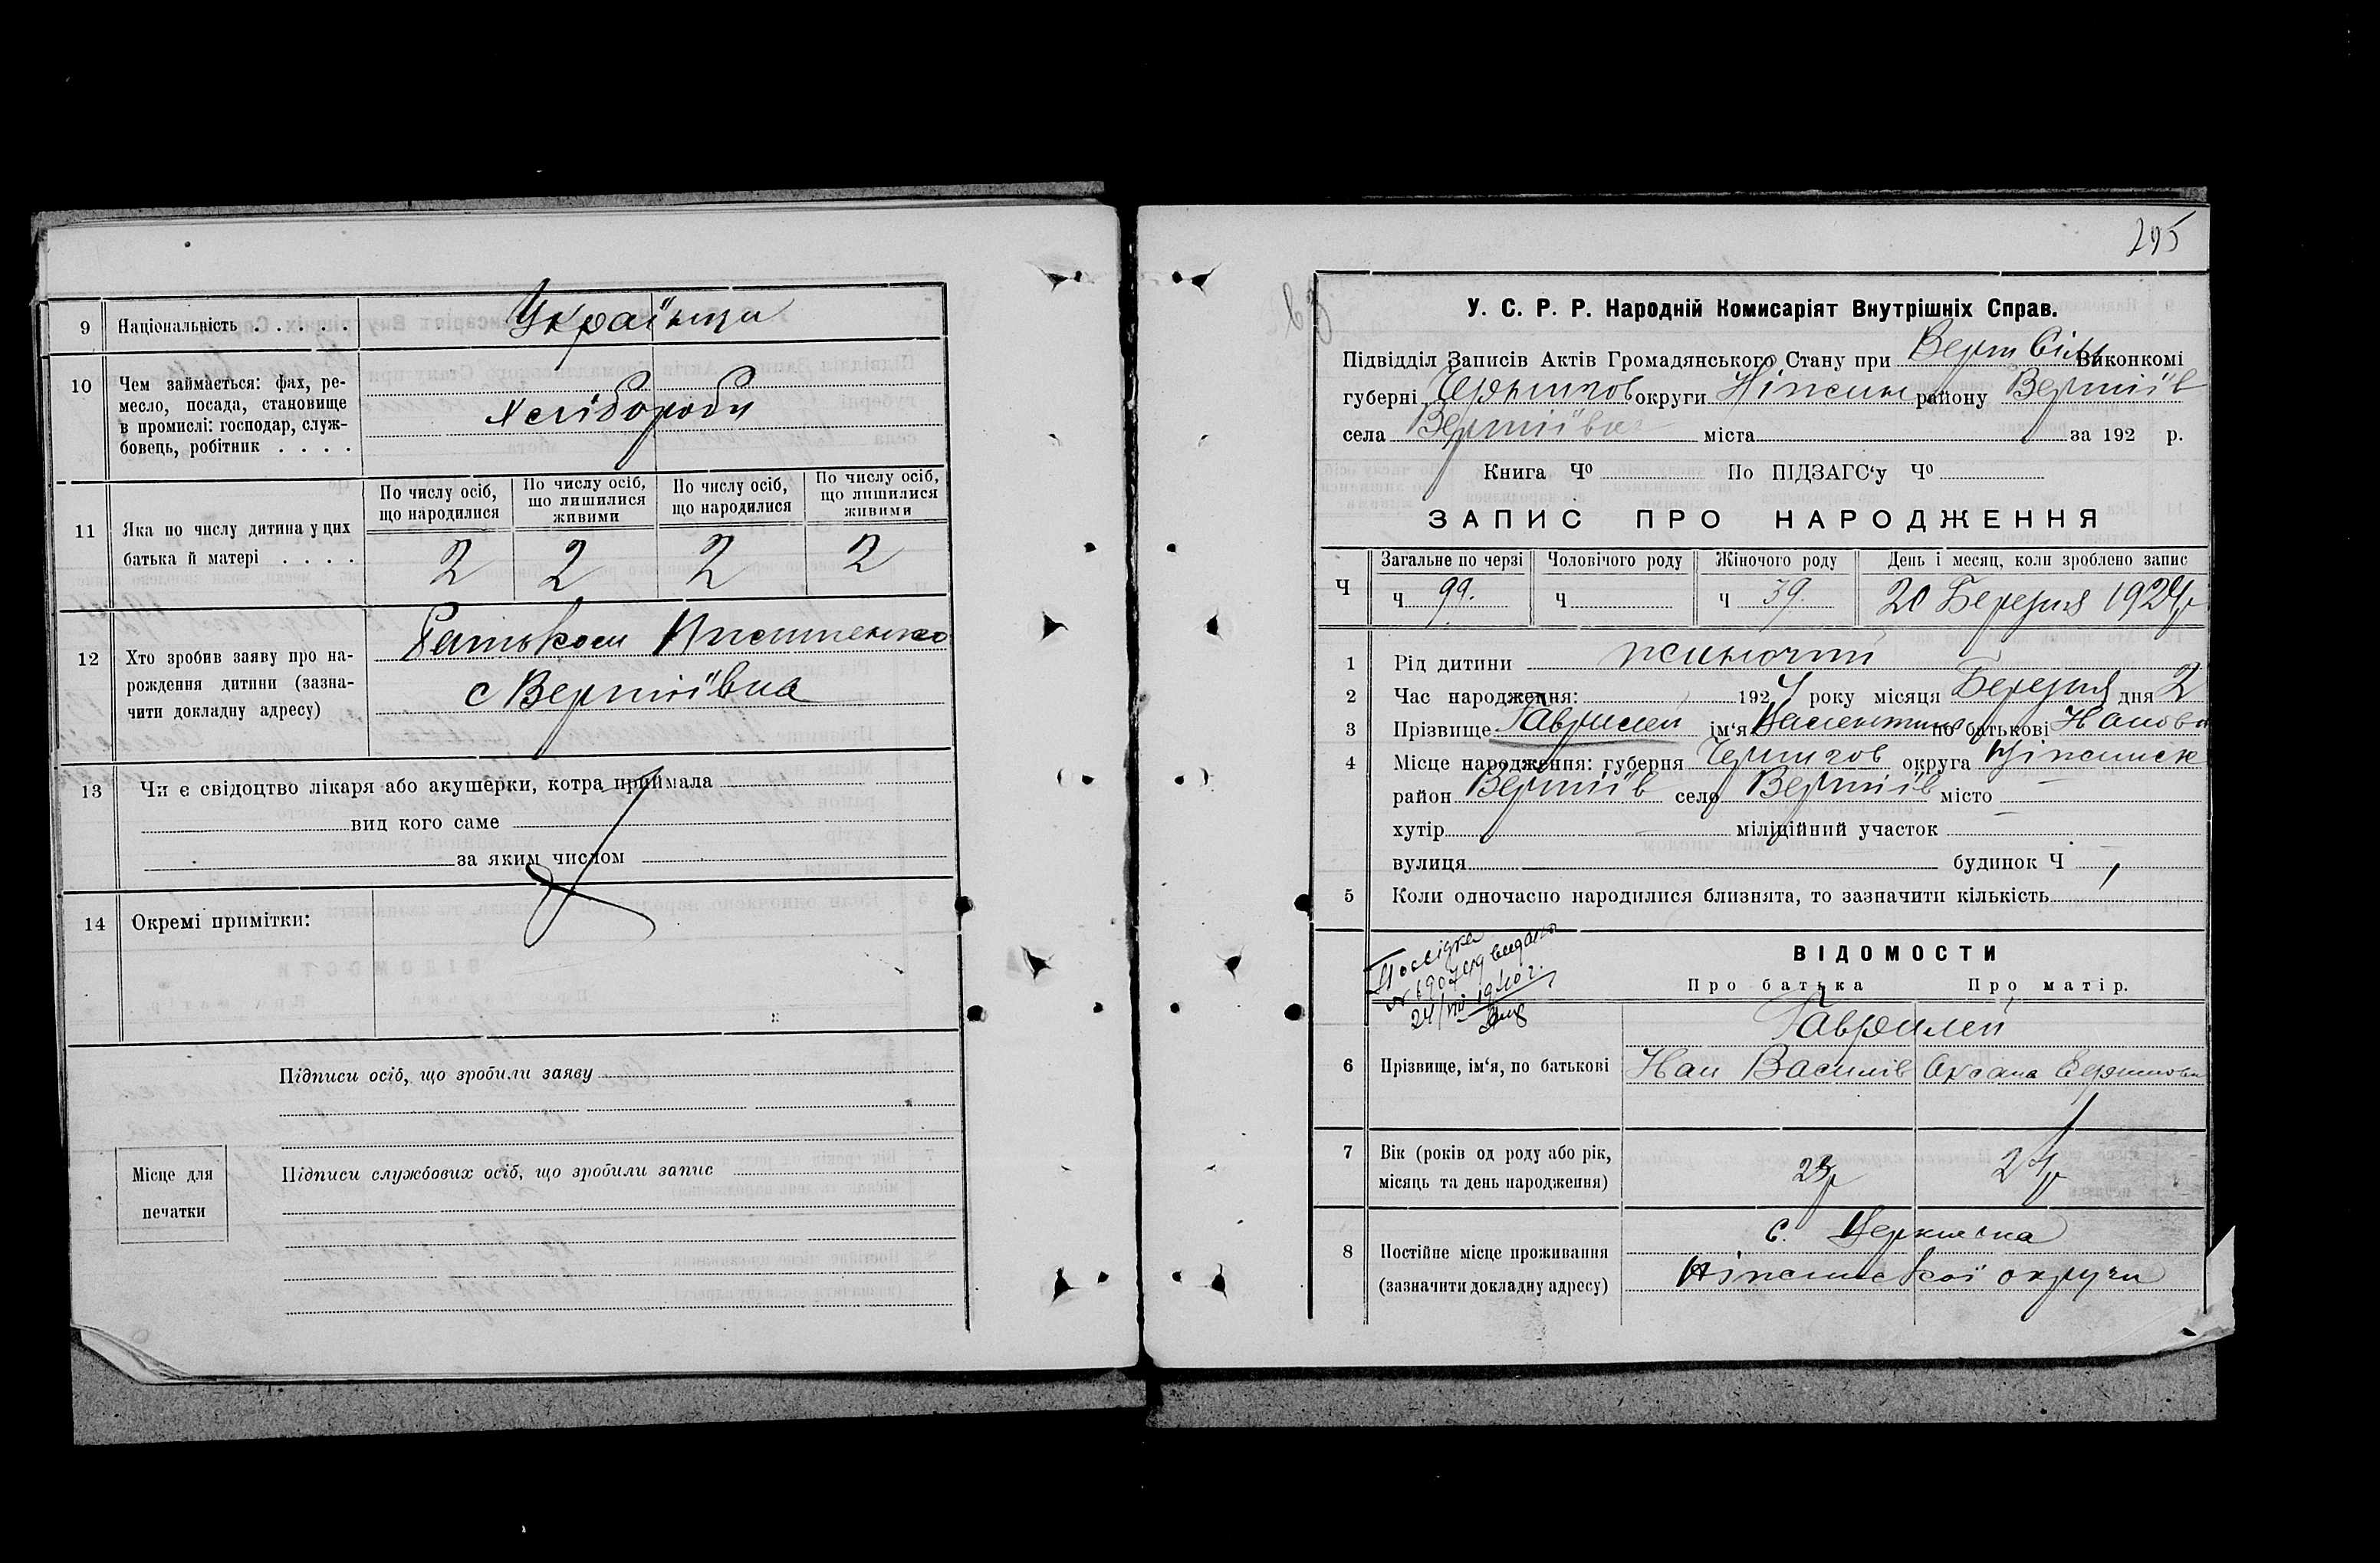 9 Національність . . . . . Українци
10 Чем займається: фах, ре-
месло, посада, становище
в промислі: господар, служ-
бовець, робітник . . . .
Хлібороби
По числу осіб, що народилися
По числу осіб, що лишилися живими
По числу осіб, що народилися
По числу осіб, що лишилися живими
11 Яка по числу дитина у цих
батька й матері . . . . 2 2 2 2
12 Хто зробив заяву про на-
рождення дитини (зазна-
чити докладну адресу)
Батьком
с Вертіївка
13 Чи є свідоцтво лікаря або акушерки, котра приймала
вид кого саме
за яким числом
14 Окремі примітки:
Підписи осіб, що зробили заяву
Місце для
печатки
Підписи службових осіб, що зробили запис
295
У. С. Р. Р. Народній Комисаріят Внутрішніх Справ.
Підвідділ Записів Актів Громадянського Стану при Верт Сіль Виконкомі
губерні Чернигов округи Ніжин району Вертіїв
села Вертіївка міста за 192 р.
Книга Ч⁰ По ПІДЗАГС‘у Ч⁰
ЗАПИС ПРО НАРОДЖЕННЯ
Ч
Загальне по черзі Чоловічого роду Жіночого роду День і месяц, коли зроблено запис
Ч 99. Ч Ч 39. 20 Березня 1924р
1 Рід дитини жиночий
2 Час народження: 1924 року місяця Березня дня 2
3 Прізвище Гаврилей ім'я Валентина по батькові
4 Місце народження: губерня Чернигов округа Ніжинск
район Вертіїв село Вертіїв місто —
хутір — міліційний участок
вулиця будинок Ч
5 Коли одночасно народилися близнята, то зазначити кількість
Посвідка
видано
24/VII 1940 г.
ВІДОМОСТИ
Про батька Про матір.
6 Прізвище, ім‘я, по батькові
Гаврилей
Василів Оксана
7 Вік (років од роду або рік,
місяць та день народження)
23р 24р
8 Постійне місце проживання
(зазначити докладну адресу)
с.
Ніжинської округи